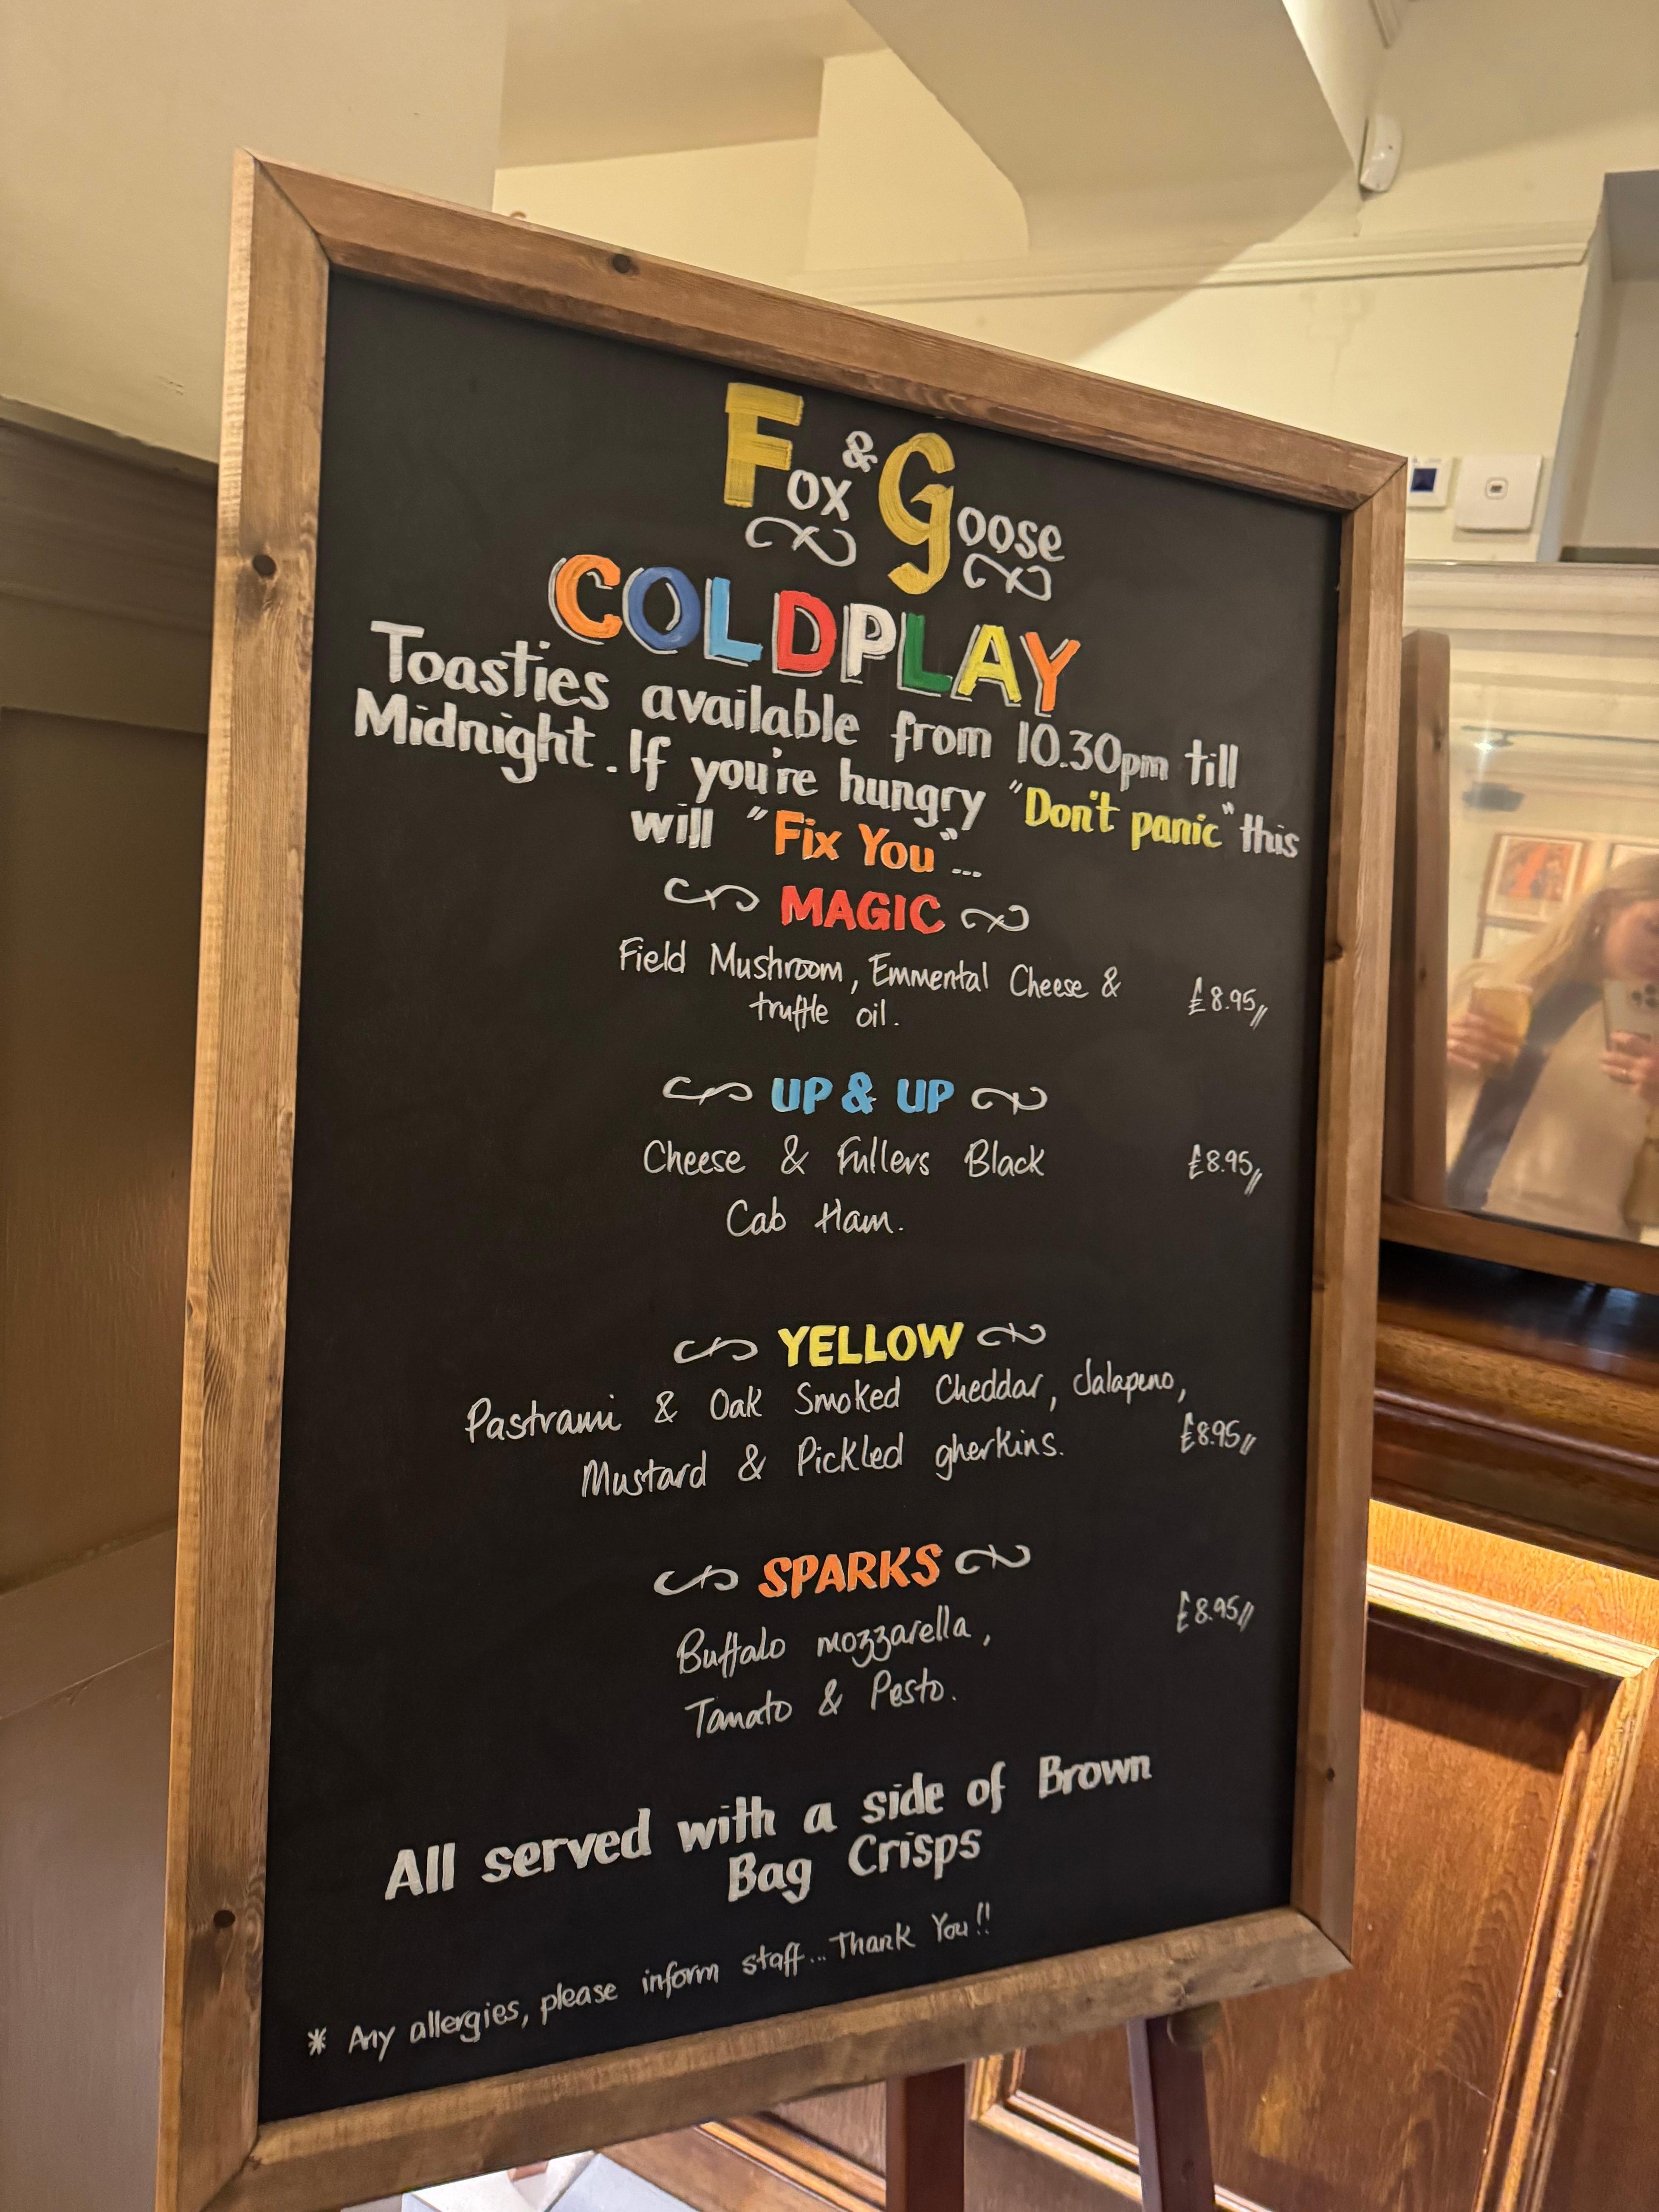 Fox & Goose
COLDPLAY
Toasties available from 10.30pm till
Midnight. If you're hungry "Don't panic" this
will "Fix You"...
MAGIC
Field Mushroom, Emmental Cheese &
truffle oil.
£8.95//
UP & UP
Cheese & Fullers Black
£8.95//
Cab Ham.
YELLOW
Pastrami & Oak Smoked Cheddar, Jalapeno,
Mustard & Pickled gherkins.
£8.95//
SPARKS
£8.95//
Buffalo mozzarella,
Tomato & Pesto.
All served with a side of Brown
Bag Crisps
* Any allergies, please inform staff... Thank You!!